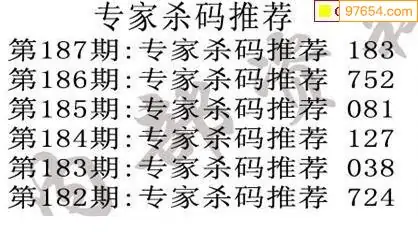 专家杀码推荐
97654.com
第187期:专家杀码推荐 183
第186期:专家杀码推荐 752
第185期:专家杀码推荐 081
第184期:专家杀码推荐 127
第183期:专家杀码推荐 038
第182期:专家杀码推荐 724